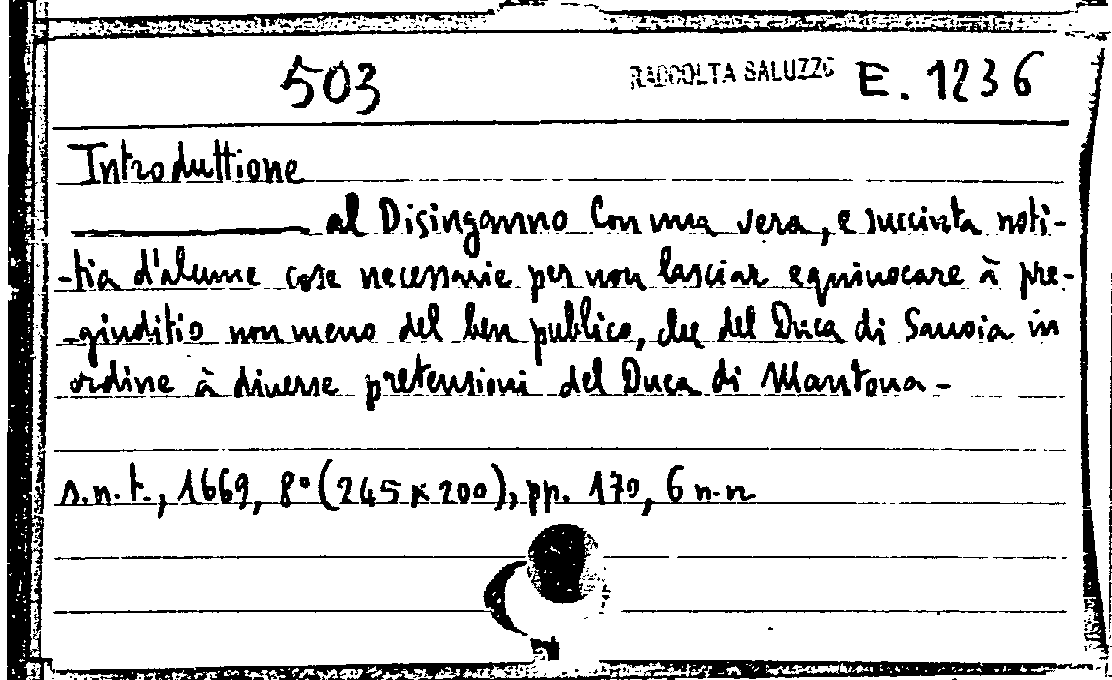 503 RACCOLTA SALUZZO E. 1236
Introduttione
al Disinganno Con una vera, e succinta noti-
-tia d'alcune cose necessarie per non lasciar equivocare à pre-
-giuditio non meno del ben publico, che del Duca di Savoia in
ordine à diverse pretensioni del Duca di Mantova-
s.n.t., 1669, 8° (245 x 200), pp. 170, 6 n.n